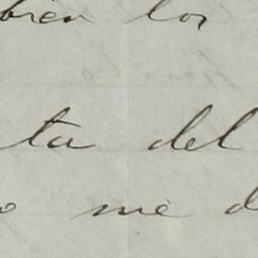 bien los
ta del
o me d